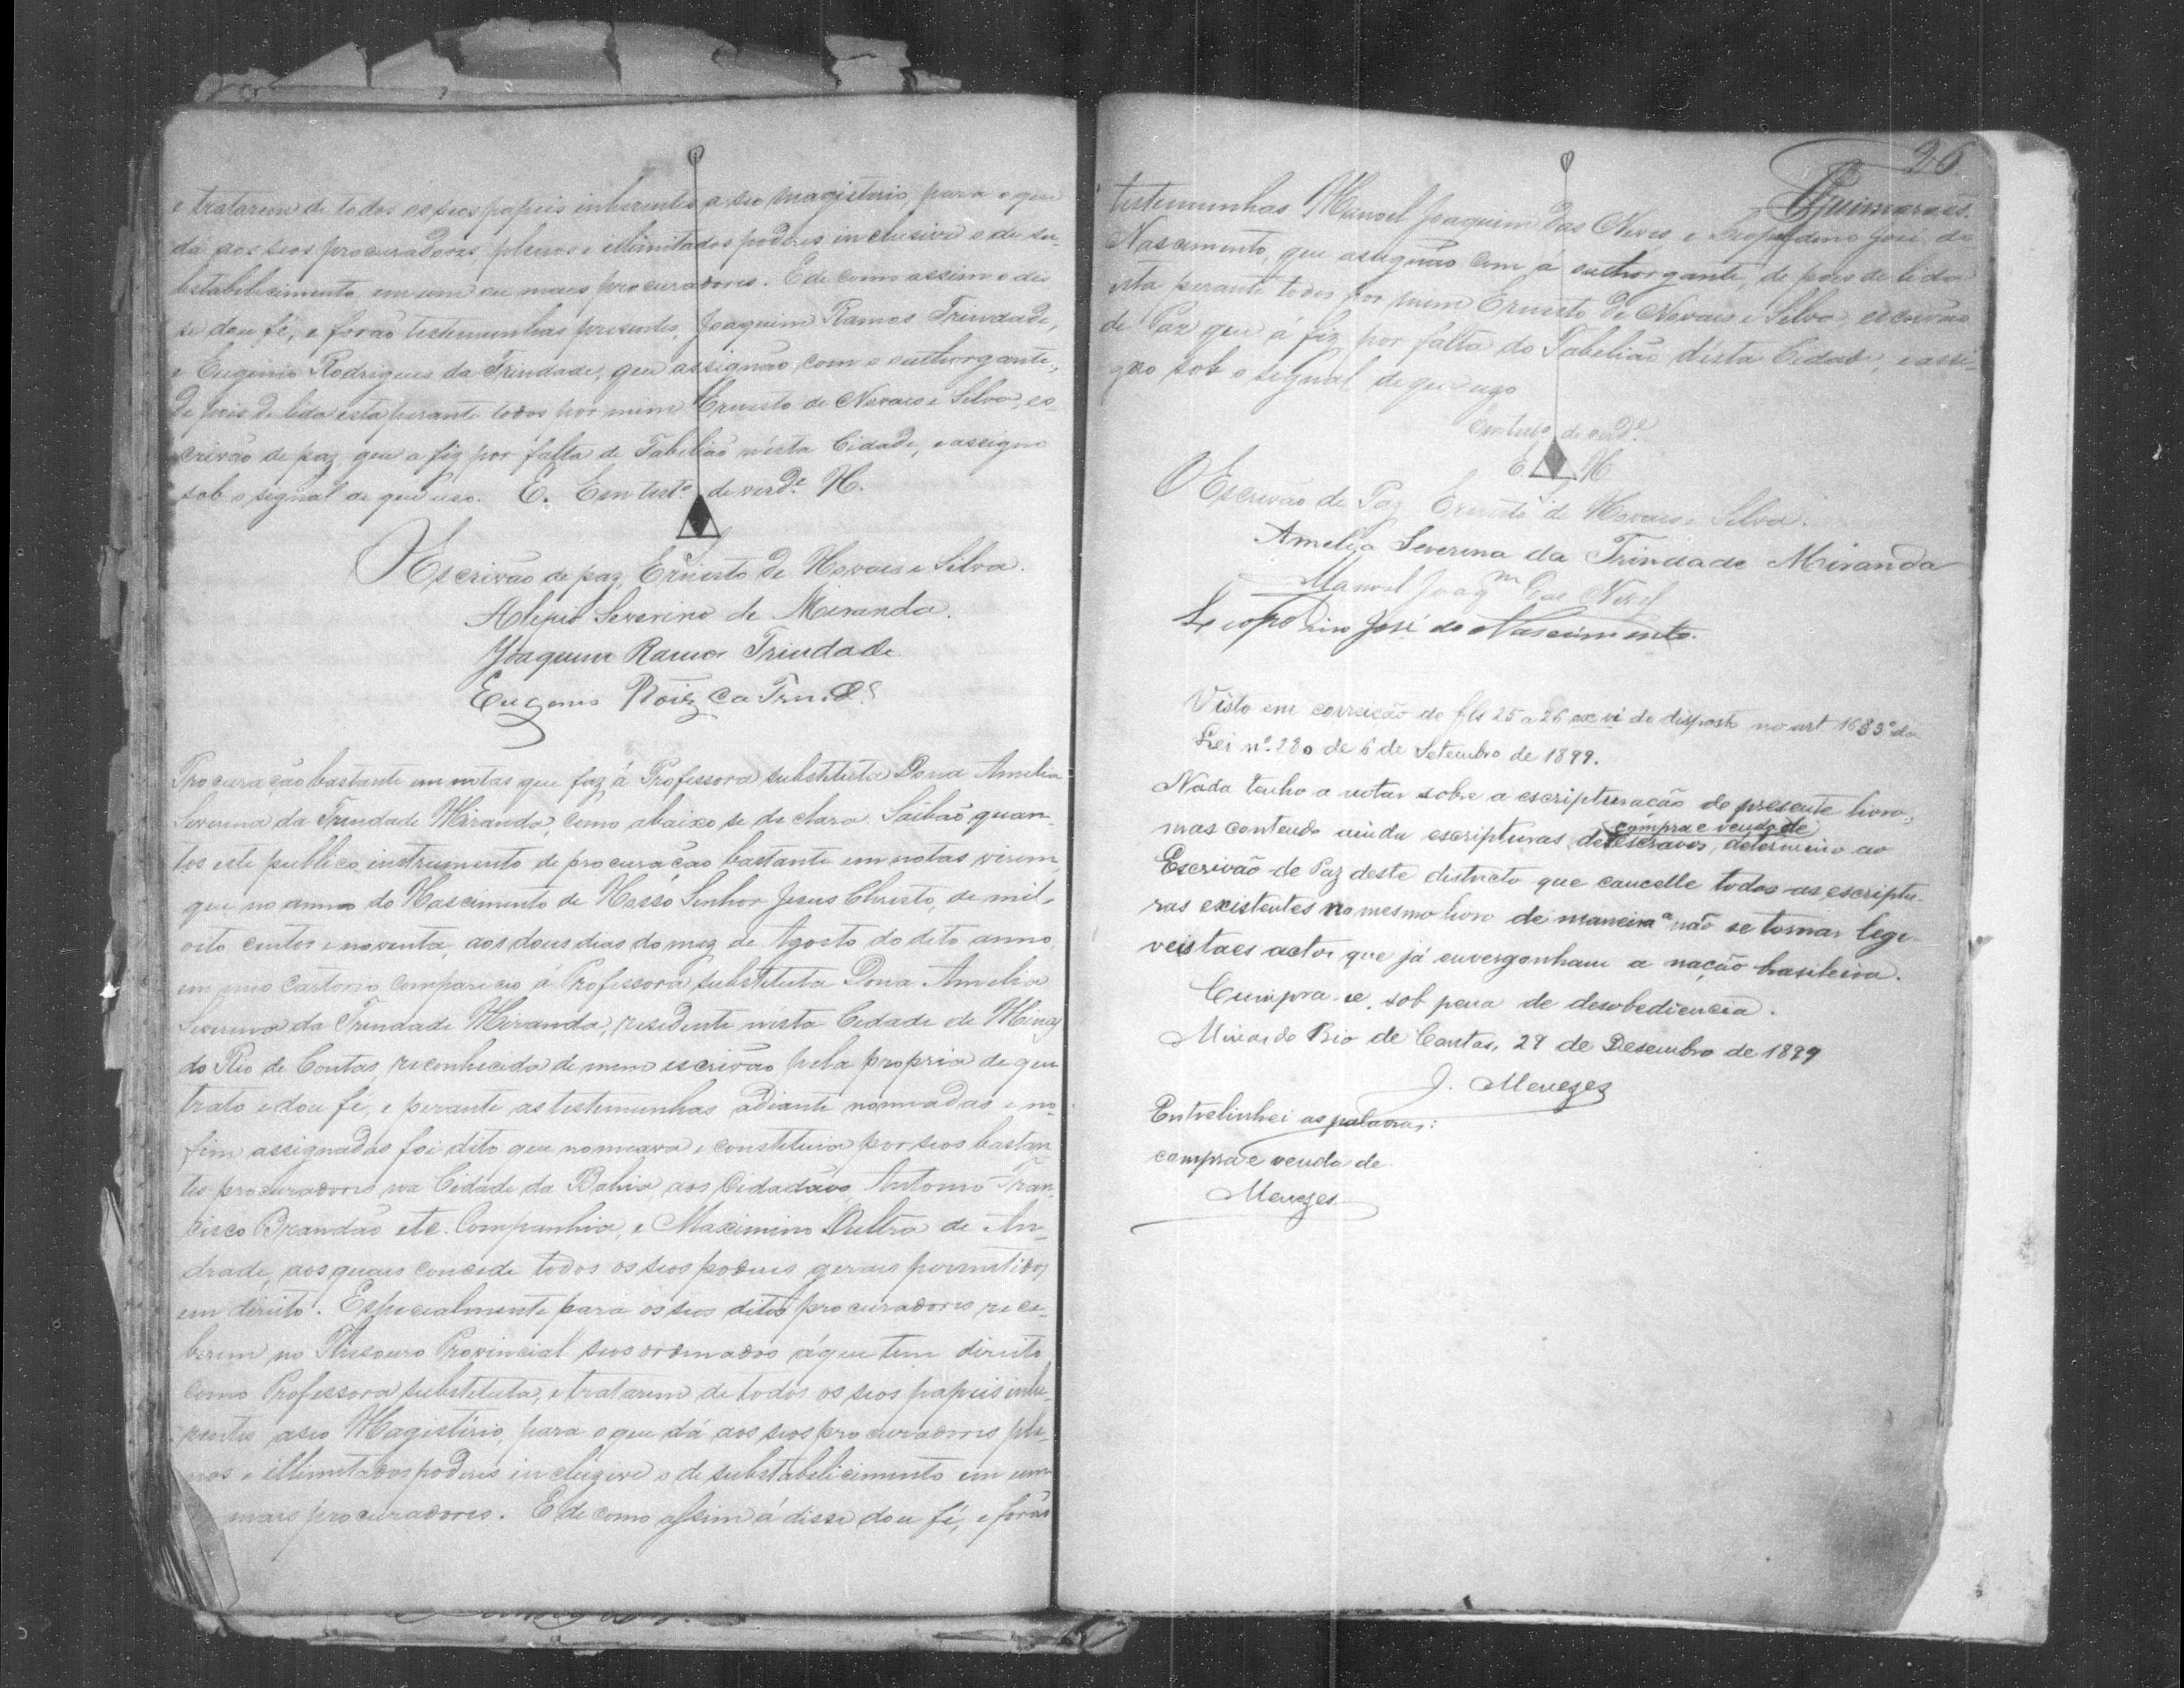 e tratarem de todos os seos papeis inherentes a seo magisterio, para o que
dá aos seos procuradores, plenos e illimitados poderes inclusive o de su-
bstabelicimento em um ou mais procuradores. E de como assim o dis
se dou fé, e forão testemunhas presentes, Joaquim Ramos Trindade,
e Eugenio Rodrigues da Trindade, que assignão com o outhorgante,
de pois de lida esta perante todos por mim Ernesto de Novaes e Silva, es-
crivão de paz, que a fiz por falta de Tabelião n'esta Cidade, e assigno
sob o signal de que uso. E. Em testo. de verde. N.
O Escrivão de paz, Ernesto de Novaes e Silva.
Alipio Severino de Miranda.
Joaquim Ramos Trindade.
Eugenio Roiz da Trin.de
Procuração bastante em notas que faz á Professora substituta Dona Amelia
Severina da Trindade Miranda, como abaixo se declara. Saibão quan-
tos este publico instrumento de procuração bastante em notas virem,
que no anno do Nascimento de Nosso Senhor Jesus Christo, de mil
oito centos e noventa, aos dous dias do mez de Agosto do dito anno,
em meo Cartorio compareceo á Professora substituta Dona Amelia
Severina da Trindade Miranda, residente nesta Cidade de Minas
do Rio de Contas, reconhecida de mim escrivão pela propria de que
trato e dou fé, e perante as testemunhas adiante nomeadas e no
fim assignadas foi dito que nomeava e constituia por seos bastan
tes procuradores na Cidade da Bahia, aos Cidadãos, Antonio Fran-
cisco Brandão et c. Companhia, e Maximino Dultra de An-
drade, aos quaes concede todos os seos poderes geraes permitidos
em direito. Especialmente para os seos ditos procuradores rece-
berem no Thesouro Provincial seos ordenados á que tem direito
como Professora substituta, e tratarem de todos os seos papeis inhe-
rentes a seo Magistério, para o que dá aos seos procuradores ple-
nos e illimitados poderes inclusive o de substabelicimento em um
mais procuradores. E de como assim á disse dou fé, e forão
26
Guimarães.
testemunhas Manoel Joaquim das Neves e Leopoldino José do
Nascimento, que assignão com á outhorgante, de pois de lida
esta perante todos por mim Ernesto de Novaes e Silva, escrivão
de Paz que á fiz por falta do Tabelião d'esta Cidade, e assi-
gno sob o signal de que uso
Em testo. de verde.
E. N
O Escrivão de Paz Ernesto de Novaes e Silva.
Amelia Severina da Trindade Miranda
Manoel Joaqm das Neves
Leopoldino José do Nascimento.
Visto em correição de fls 25 a 26 ex vi do disposto no art. 1683º da
Lei nº. 280 de 6 de Setembro de 1899.
Nada tenho a notar sobre a escripturação do presente livro,
mas contendo ainda escripturas de compra e venda de escravos, determino ao
Escrivão de Paz deste districto que cancelle todas as escriptu-
ras existentes no mesmo livro de maneira a não se tornar legi-
veis taes actos que já envergonham a nação brasileira.
Cumpra-se, sob pena de desobediencia.
Minas do Rio de Contas, 29 de Desembro de 1899
J. Menezes
Entrelinhei as palavras:
compra e venda de.
Menezes